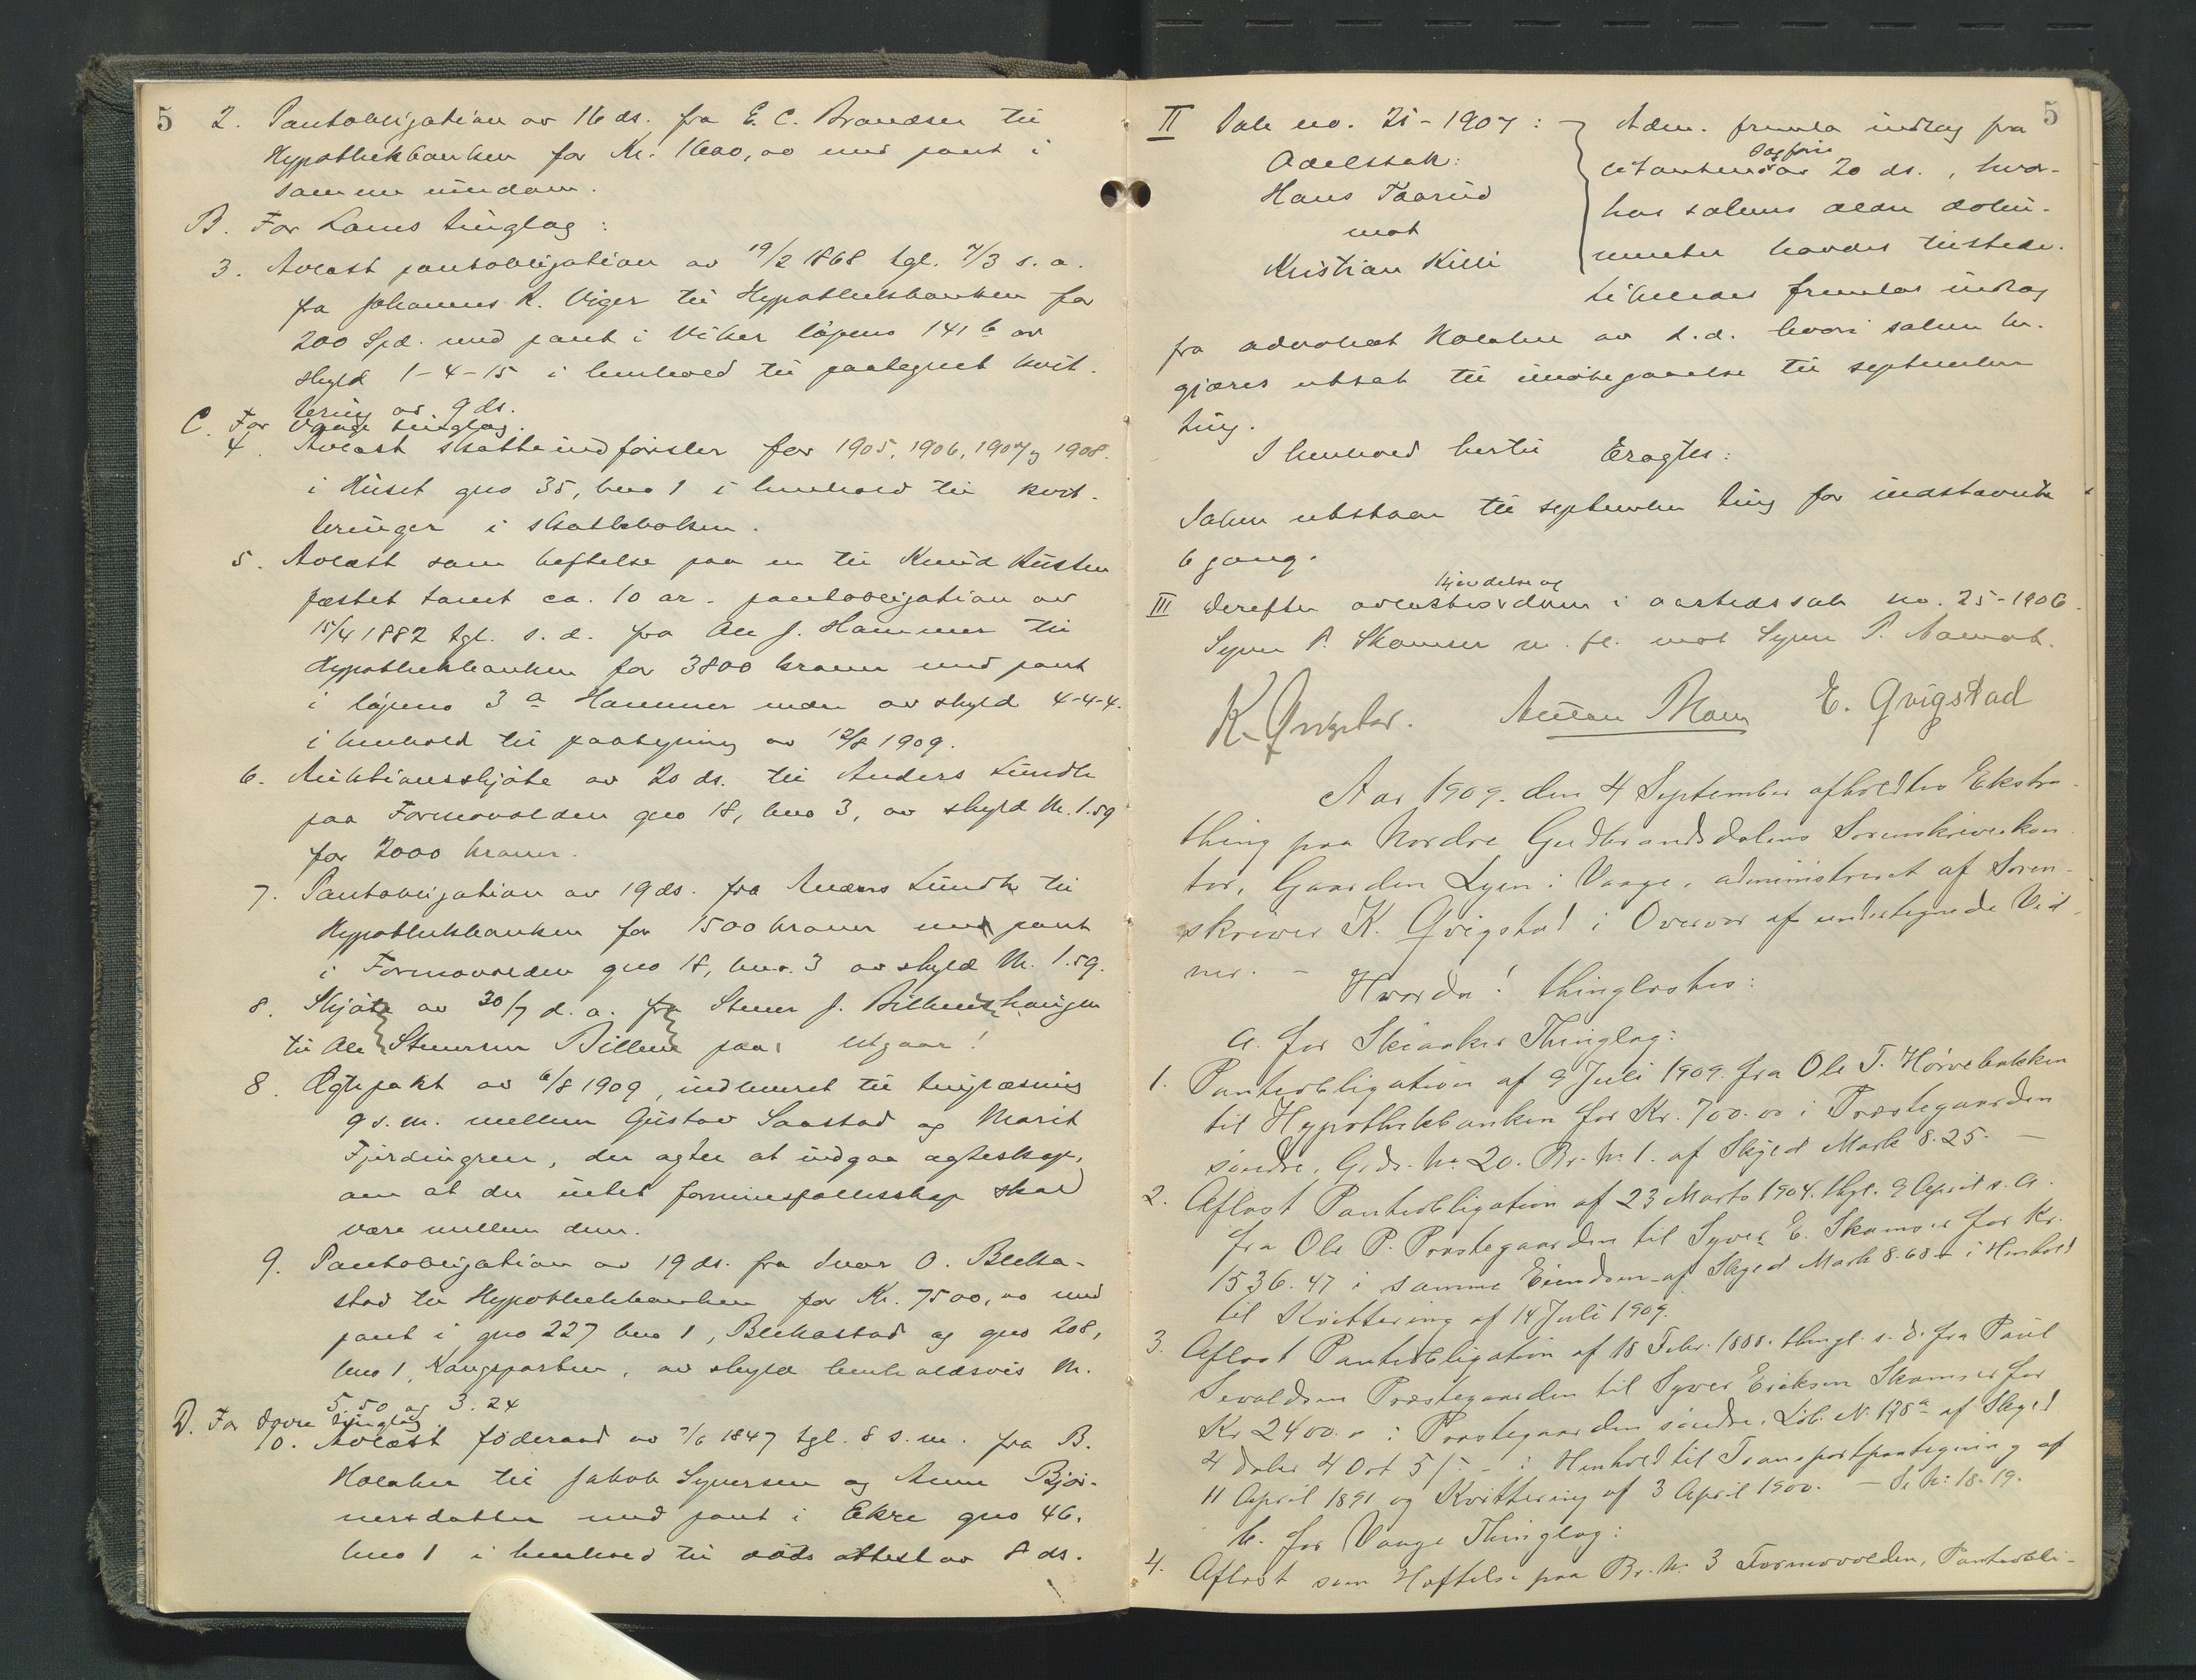 5
2. Pantobligation av 16 ds. fra E. C. Brandsen til
Hypothekbanken for Kr. 1600,00 med pant i
samme eiendom.
B. For Loms tinglag:
3. Avlæst pantobligation av 19/2 1868 tgl. 7/3 s. a.
fra Johannes K. Viger til Hypothekbanken for
200 Spd. med pant i Viker løpeno 141 b av
skyld 1-4-15 i henhold til paategnet kvit-
tering av 9 ds.
C. For Vaage tinglag.
4. Avlæst skatteindførsler for 1905, 1906, 1907 og 1908
i Huset gno 35, bno 1 i henhold til kvit-
teringer i skattebøken.
5. Avlæst som heftelse paa en til Knud Husten
fæstet tomt ca. 10 ar - pantobligation av
15/4 1882 tgl. s. d. fra Ole J. Hammer til
Hypothekbanken for 3800 kroner med pant
i løpeno 3 a Hammer nedre av skyld 4-4-4.
i henhold til paategning av 12/8 1909.
6. Auktionsskjøte av 20 ds. til Anders Lundh
paa Formovolden gno 18, bno 3, av skyld M. 1.59
for 2000 kroner.
7. Pantobligation av 19 ds. fra Anders Lundh til
Hypothekbanken for 1500 kroner med pant
i Formovolden gno 18, bno. 3 av skyld M. 1.59.
8. Skjøte av 30/7 d. a. fra Stener J. Billendshaugen
til Ole Stenersen Billend paa utgaar!
8. Ægtepakt av 6/8 1909, indleveret til tinglæsning
9 s. m. mellem Gustav Saastad og Marit
Fjerdingren, der agter at indgaa ægteskap,
om at der intet formuesfællesskap skal
være mellem dem.
9. Pantobligation av 19 ds. fra Ivar O. Bleka-
stad til Hypothekbanken for Kr. 7500,00 med
pant i gno 227 bno 1, Blekastad og gno 208,
bno 1, Kongsparten, av skyld henholdsvis M.
5.50 og 3.24
D. For Dovre tinglag.
10. Avlæst føderaad av 7/6 1847 tgl. 8 s. m. fra B.
Holaker til Jakob Syversen og Anne Bjør-
nersdatter med pant i Ekre gno 46.
bno 1 i henhold til dødsattest av 8 ds.
5
II Sak no. 21-1907:
Odelssak:
Hans Taarud
mot
Kristian Killi
Adm. fremla indlæg fra
citantens sagfører av 20 ds., hvor-
hos sakens ældre doku-
menter havdes tilstede.
Likeledes fremlas indlæg
fra advokat Holaker av d.d. hvori saken be-
gjæres utsat til imøtegaaelse til september
ting.
I henhold hertil Eragtes:
Saken utstaar til september ting for indstævnte
6 gang.
III Derefter avlæstes kjendelse og dom i aastedssak no. 25-1906.
Syver P. Skamser m. fl. mot Syver P. Aamot.
K. Qvigstad. Anton Moen E. Qvigstad
Aar 1909. den 4 September afholdtes Ekstra-
thing paa Nordre Gudbrandsdalens Sorenskriverkon-
tor, Gaarden Lyen i Vaage, administreret af Soren-
skriver K. Qvigstad i Overvær af undertegnede Vid-
ner. –
Hvorda! thinglæstes:
a. for Skiaaker Thinglag:
1. Pantobligation af 9 Juli 1909. fra Ole T. Hørvebakken
til Hypothekbanken for Kr. 700.00 i Præstegaarden
søndre, Grds. No 20. Br. No 1. af Skyld Mark 8.25. –
2. Aflæst Pantobligation af 23 Marts 1904. thgl. 9 April s. A.
fra Ole P. Præstegaarden til Syver E. Skamser for Kr.
1536.47 i samme Eiendom af Skyld Mark 8.68 i Henhold
til Kvittering af 14 Juli 1909.
3. Aflæst Pantobligation af 18 Febr. 1888. thngl. s. D. fra Paul
Sevaldsen Præstegaarden til Syver Eriksen Skamser for
Kr 2400.00 i Præstegaarden søndre, Løb. No 178 a af Skyld
4 Daler 4 Ort 5 /: - i Henhold til Transportpaategning af
11 April 1891 og Kvittering af 3 April 1900. – S. No: 18-19.
b. for Vaage Thinglag:
4. Aflæst som Hæftelse paa Br. No 3 Formovolden, Pantobli-